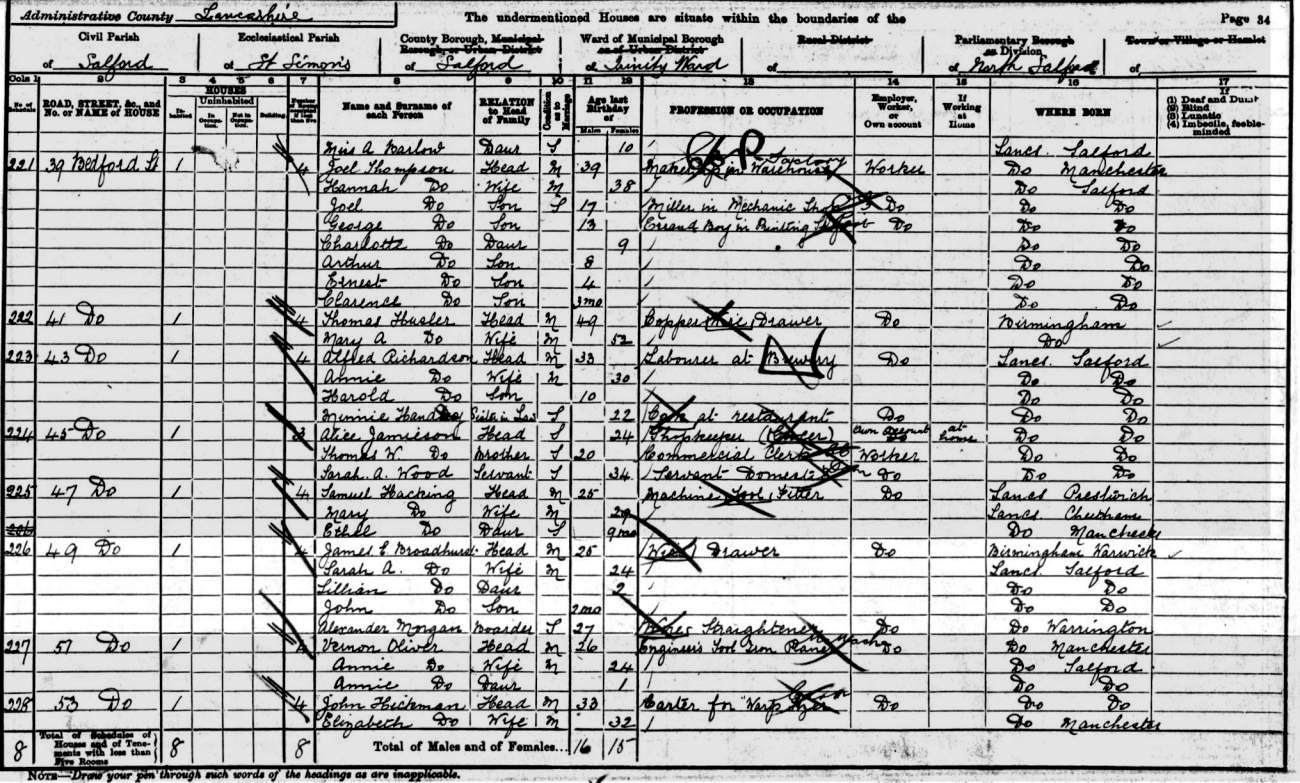 Administrative County Lancashire The undermentioned Houses are situate within the boundaries of the Page 34
Civil Parish Ecclesiastical Parish County Borough, Municipal Borough, or Urban District Ward of Municipal Borough or of Urban District Rural District Parliamentary Borough or Division Town or Village or Hamlet
of Salford of St Simon's of Salford of Trinity Ward of of North Salford of
Cols 1 2 3 4 5 6 7 8 9 10 11 12 13 14 15 16 17
No. of Schedule ROAD, STREET, &c., and No. or NAME of HOUSE HOUSES Inhabited Uninhabited In Occupation. Not in Occupation. Building. Name and Surname of each Person RELATION to Head of Family Condition as to Marriage Age last Birthday of Males Females PROFESSION OR OCCUPATION Employer, Worker, or Own account If Working at Home WHERE BORN If (1) Deaf and Dumb (2) Blind (3) Lunatic (4) Imbecile, feeble-minded
A Barlow Daur S 10 Lancs. Salford
221 39 Bedford St 1 4 Joel Thompson Head M 39 Maker up in Warehouse Factory Worker Do Manchester
Hannah Do Wife M 38 Do Salford
Joel Do Son S 17 Miller in Mechanic Shop Do Do Do
George Do Son 13 Errand Boy in Printing Do Do Do
Charlotte Do Daur 9 Do Do
Arthur Do Son 8 Do Do
Ernest Do Son 4 Do Do
Clarence Do Son 3mo Do Do
222 41 Do 1 4 Thomas Husler Head M 49 Copper Wire Drawer Do Birmingham
Mary A Do Wife M 52 Do
223 43 Do 1 4 Alfred Richardson Head M 33 Labourer at Brewery Do Lancs. Salford
Annie Do Wife M 30 Do Do
Harold Do Son 10 Do Do
Minnie Sister in Law S 22 Cook at restaurant Do Do Do
224 45 Do 1 3 Alice Jamieson Head S 24 Shopkeeper Own account at home Do Do
Thomas W. Do Brother S 20 Commercial Clerk Worker Do Do
Sarah A. Wood Servant S 34 Servant Domestic Do Do Do
225 47 Do 1 4 Samuel Hacking Head M 25 Machine Tool Fitter Do Lancs Prestwich
Mary Do Wife M 29 Lancs. Cheetham
Ethel Do Daur S 9mo Do Manchester
226 49 Do 1 4 James E Broadhurst Head M 25 Wire Drawer Do Birmingham Warwick
Sarah A. Do Wife M 24 Lancs. Salford
Lillian Do Daur 2 Do Do
John Do Son 2mo Do Do
Alexander Morgan Boarder S 27 Straightener Do Do Warrington
227 51 Do 1 4 Vernon Oliver Head M 26 Engineers Tool Iron Planer Do Do Manchester
Annie Do Wife M 24 Do Salford
Annie Do Daur 1 Do Do
228 53 Do 1 4 John Hickman Head M 33 Carter for Do Do Do
Elizabeth Do Wife M 32 Do Manchester
8 Total of Schedules of Houses and of Tenements with less than Five Rooms 8 8 Total of Males and of Females... 16 15
NOTE—Draw your pen through such words of the headings as are inapplicable.